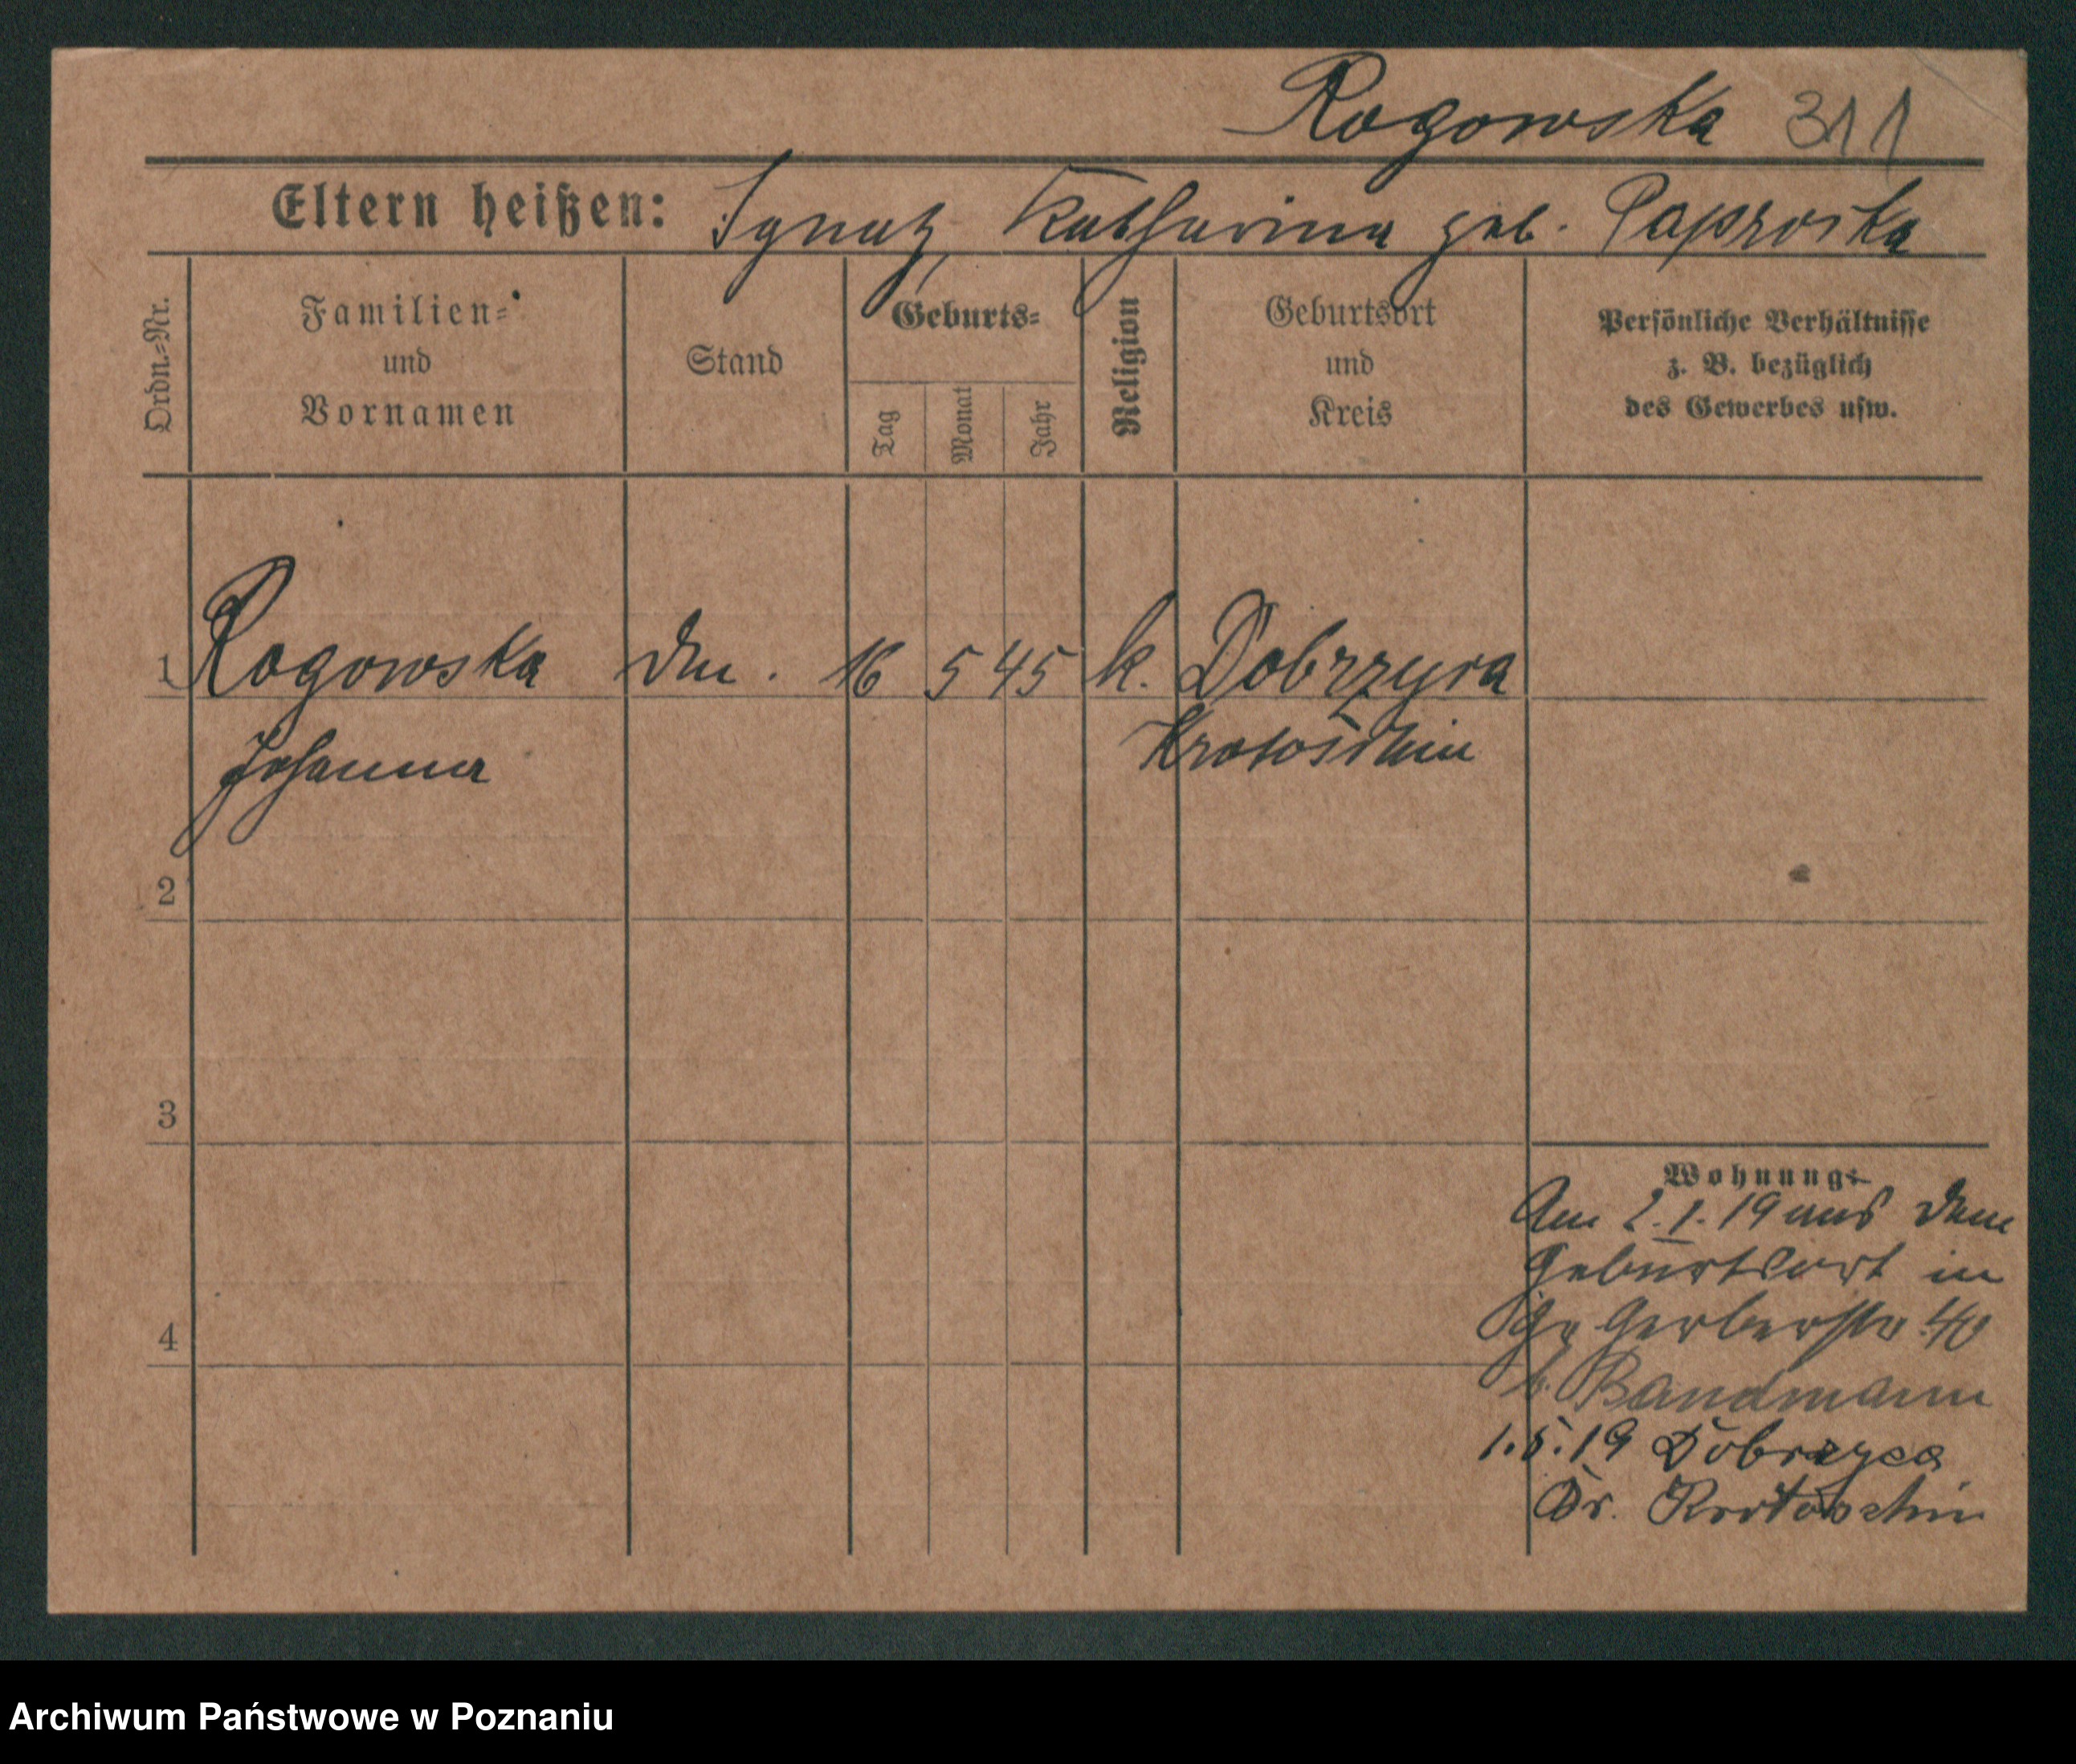 Rogowska 311
Eltern heißen: Ignatz, Katharina geb. Paproska
Ordn.-Nr.
Familien=
und
Vornamen
Stand
Geburts=
Tag
Monat
Jahr
Religion
Geburtsort
und
Kreis
Persönliche Verhältnisse
z. B. bezüglich
des Gewerbes usw.
1 Rogowska 16 5 45 k. Dobrzyca
Johanna Krotoschin
2
3
4
Wohnung:
Am 2.1.19 aus dem
Geburtsort in
Gr Gerberstr 40
b. Bandmann
1.5.19 Dobrzyca
Kr. Krotoschin
Archiwum Państwowe w Poznaniu